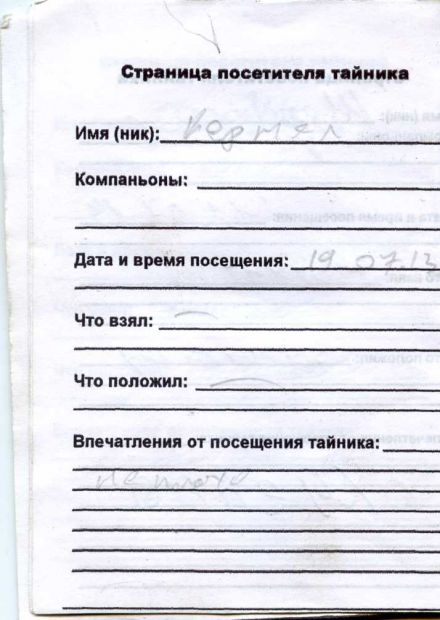 Страница посетителя тайника
Имя (ник): Кормел
Компаньоны:
Дата и время посещения: 19 07.13
Что взял: —
Что положил: —
Впечатления от посещения тайника:
не плохо